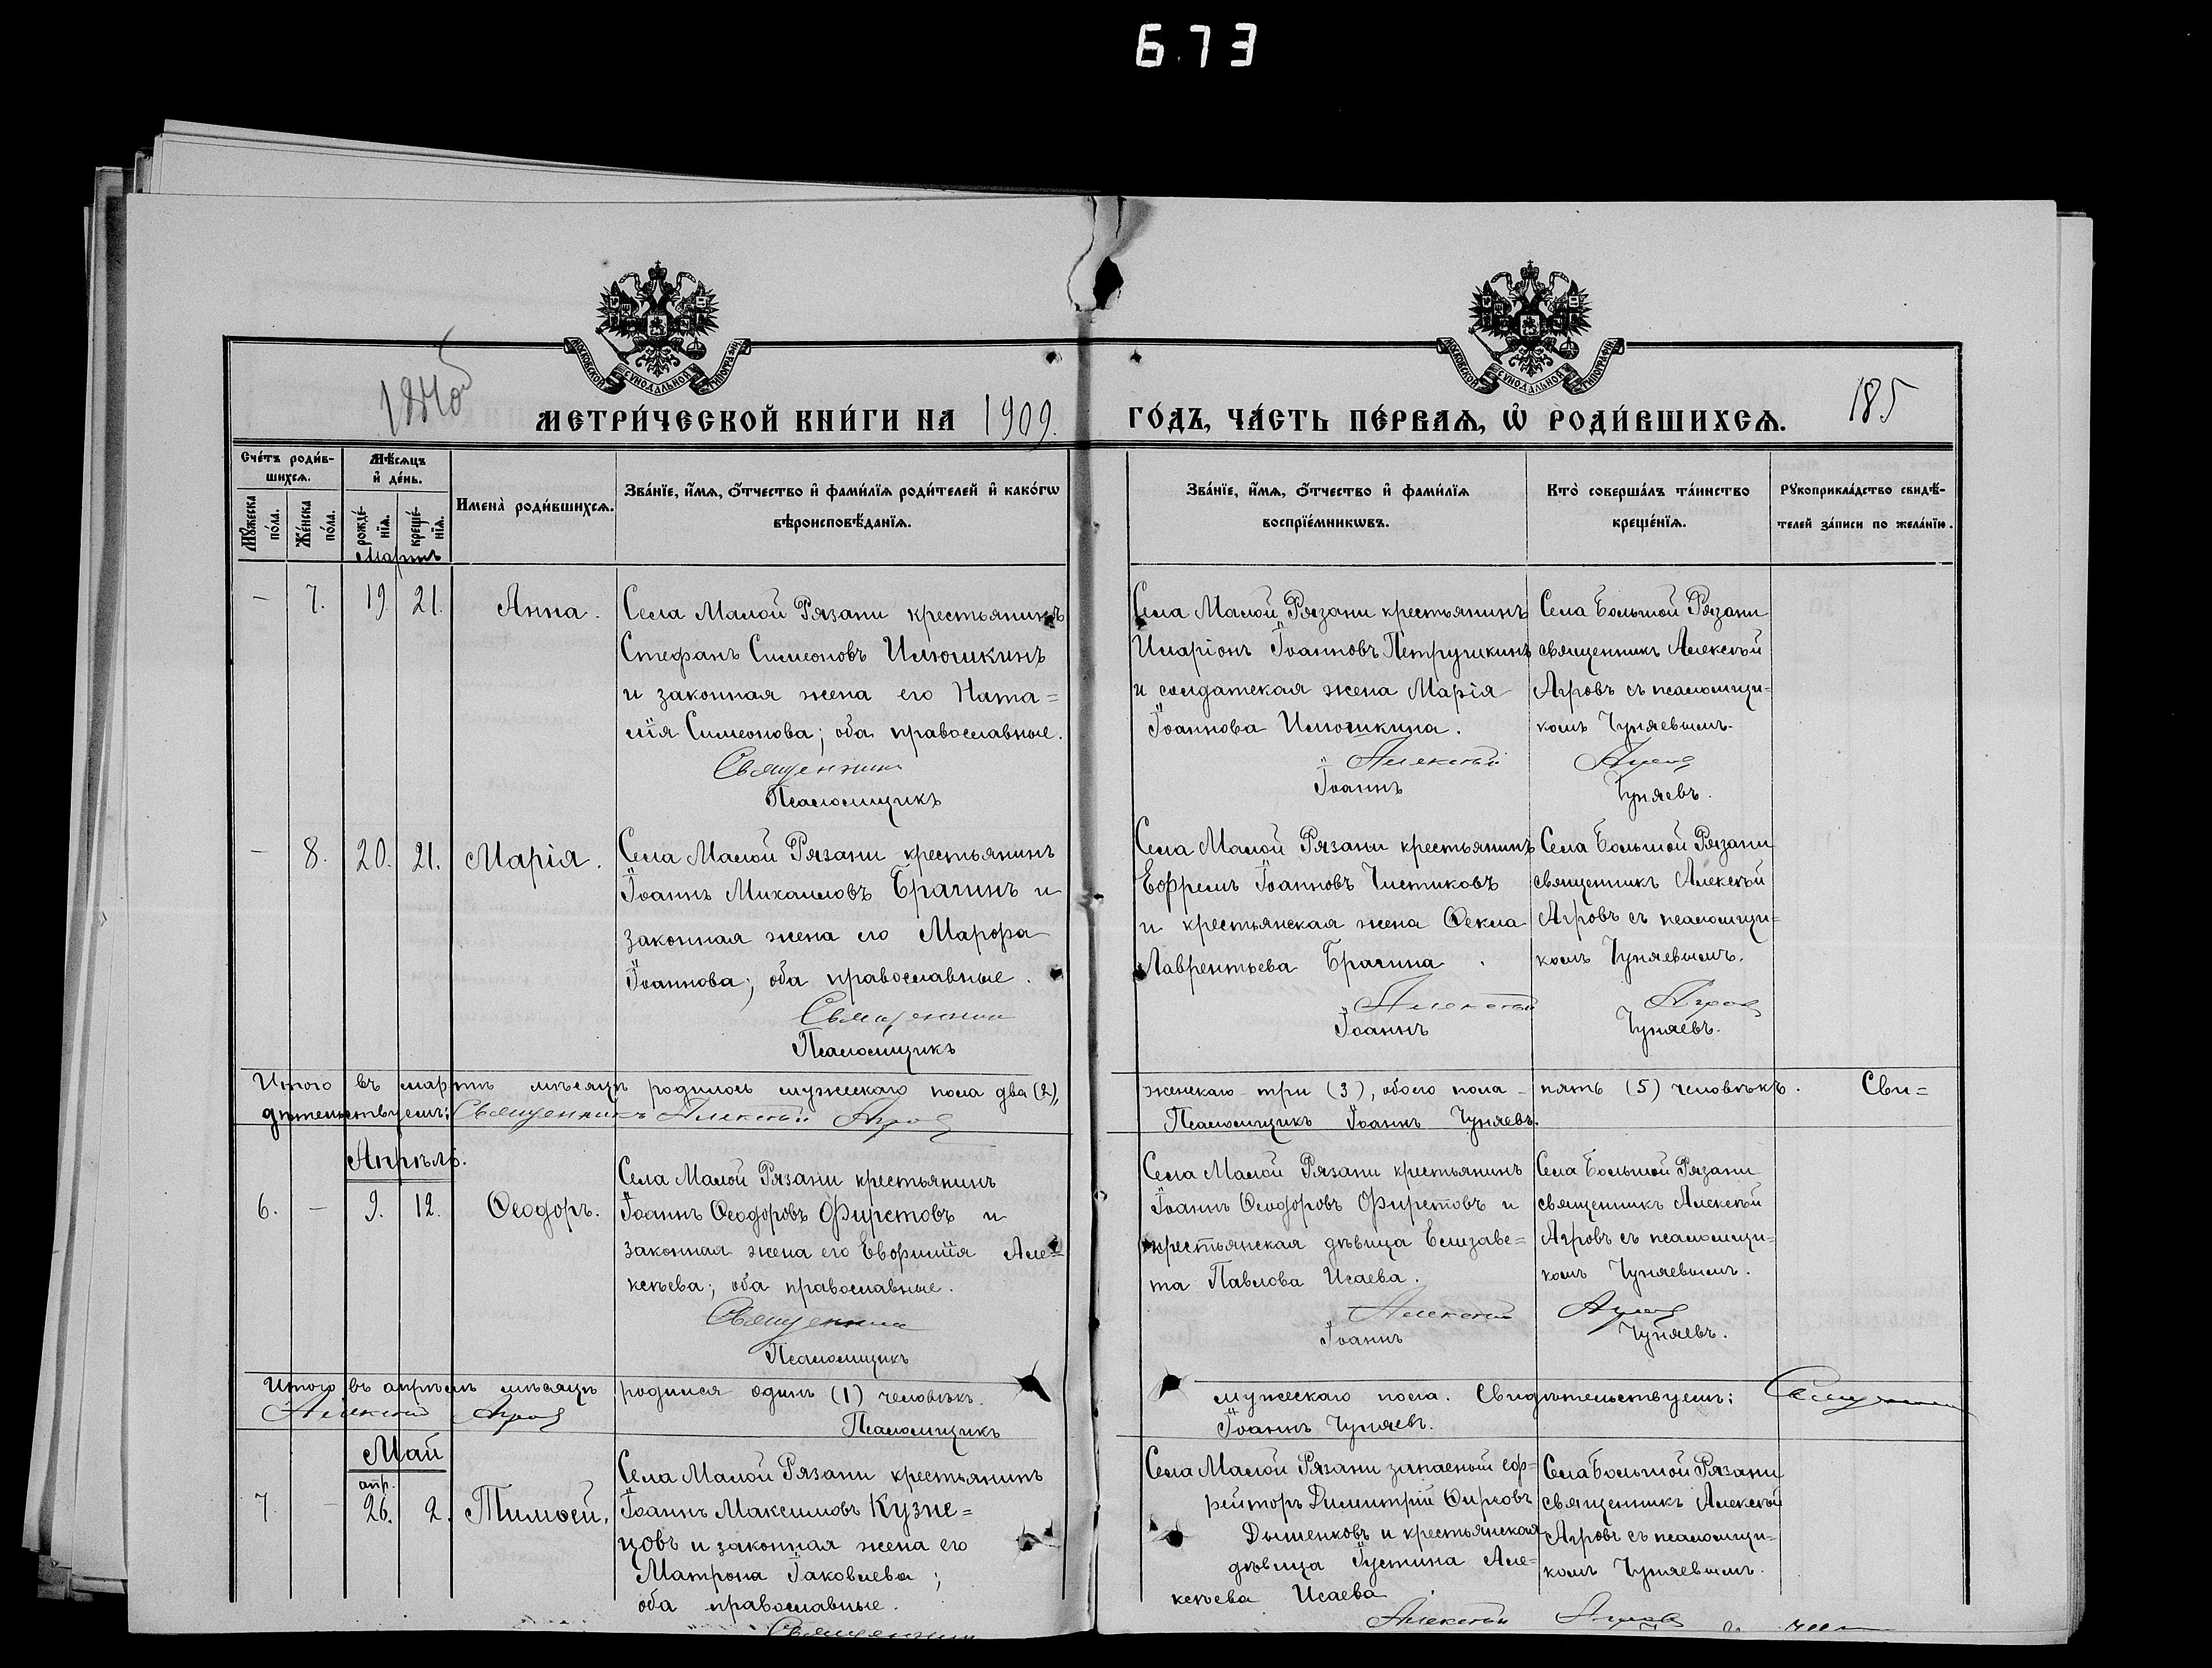 6.73
МОСКОВСКОЙ СѴНОДАЛЬНОЙ ТИПОГРАФІИ
МОСКОВСКОЙ СѴНОДАЛЬНОЙ ТИПОГРАФІИ
185
МЕТРИ́ЧЕСКОЙ КНИ́ГИ НА 1909. ГО́ДЪ, ЧА́СТЬ ПЕ́РВАѦ, Ѡ҆ РОДИ́ВШИХСѦ.
Сче́тъ роди́в-
шихсѧ.
Мꙋ́жеска по́ла.
Же́нска по́ла.
Мѣ́сѧцъ
и҆ де́нь.
рожде́-
нїѧ.
креще́-
нїѧ.
Имена̀ роди́вшихсѧ.
Зва́нїе, и҆́мѧ, ѻ҆́тчество и҆ фами́лїѧ роди́телей и҆ како́гѡ
вѣроисповѣ́данїѧ.
Зва́нїе, и҆́мѧ, ѻ҆́тчество и҆ фами́лїѧ
воспрїе́мникѡвъ.
Кто̀ соверша́лъ та́инство
креще́нїѧ.
Рꙋкоприкла́дство свидѣ́-
телей за́писи по жела́нїю.
Мартъ
– 7. 19. 21. Анна.
Села Малой Рязани крестьянинъ
Стефанъ Симеоновъ Илюшкинъ
и законная жена его Ната=
лія Симеонова; оба православные.
Священникъ
Псаломщикъ
Села Малой Рязани крестьянинъ
Иларіонъ Іоанновъ Петрушкинъ
и солдатская жена Марія
Іоаннова Илюшкина.
Алексѣй
Іоаннъ
Села Большой Рязани
священникъ Алексѣй
Агровъ съ псаломщи=
комъ Чуняевымъ.
Агровъ
Чуняевъ.
– 8. 20. 21. Марія.
Села Малой Рязани крестьянинъ
Іоаннъ Михаиловъ Брагинъ и
законная жена его Марфа
Іоаннова; оба православные.
Священникъ
Псаломщикъ
Села Малой Рязани крестьянинъ
Ефремъ Іоанновъ Чистиковъ
и крестьянская жена Ѳекла
Лаврентьева Брагина.
Алексѣй
Іоаннъ
Села Большой Рязани
священникъ Алексѣй
Агровъ съ псаломщи=
комъ Чуняевымъ.
Агровъ
Чуняевъ.
Итого въ мартѣ мѣсяцѣ родилось мужескаго пола два (2), женскаго – три (3), обоего пола – пять (5) человѣкъ. Сви=
дѣтельствуемъ: Священникъ Алексѣй Агровъ Псаломщикъ Іоаннъ Чуняевъ.
Апрѣль.
6. – 9. 12. Ѳеодоръ.
Села Малой Рязани крестьянинъ
Іоаннъ Ѳеодоровъ Фирстовъ и
законная жена его Евфимія Але=
ксѣева; оба православные.
Священникъ
Псаломщикъ
Села Малой Рязани крестьянинъ
Іоаннъ Ѳеодоровъ Фирстовъ и
крестьянская дѣвица Елизаве=
та Павлова Исаева.
Алексѣй
Іоаннъ
Села Большой Рязани
священникъ Алексѣй
Агровъ съ псаломщи=
комъ Чуняевымъ.
Агровъ
Чуняевъ.
Итого въ апрѣлѣ мѣсяцѣ родился одинъ (1) человѣкъ мужескаго пола. Свидѣтельствуемъ: Священникъ
Алексѣй Агровъ Псаломщикъ Іоаннъ Чуняевъ.
Май
апр.
7. – 26. 2. Тимоѳей.
Села Малой Рязани крестьянинъ
Іоаннъ Максимовъ Кузне=
цовъ и законная жена его
Матрона Іаковлева;
оба православные.
Священникъ
Села Малой Рязани запасный еф=
рейторъ Димитрій Фирсовъ
Дышенковъ и крестьянская
дѣвица Іустина Але=
ксѣева Исаева
Алексѣй
Села Большой Рязани
священникъ Алексѣй
Агровъ съ псаломщи=
комъ Чуняевымъ.
Агровъ